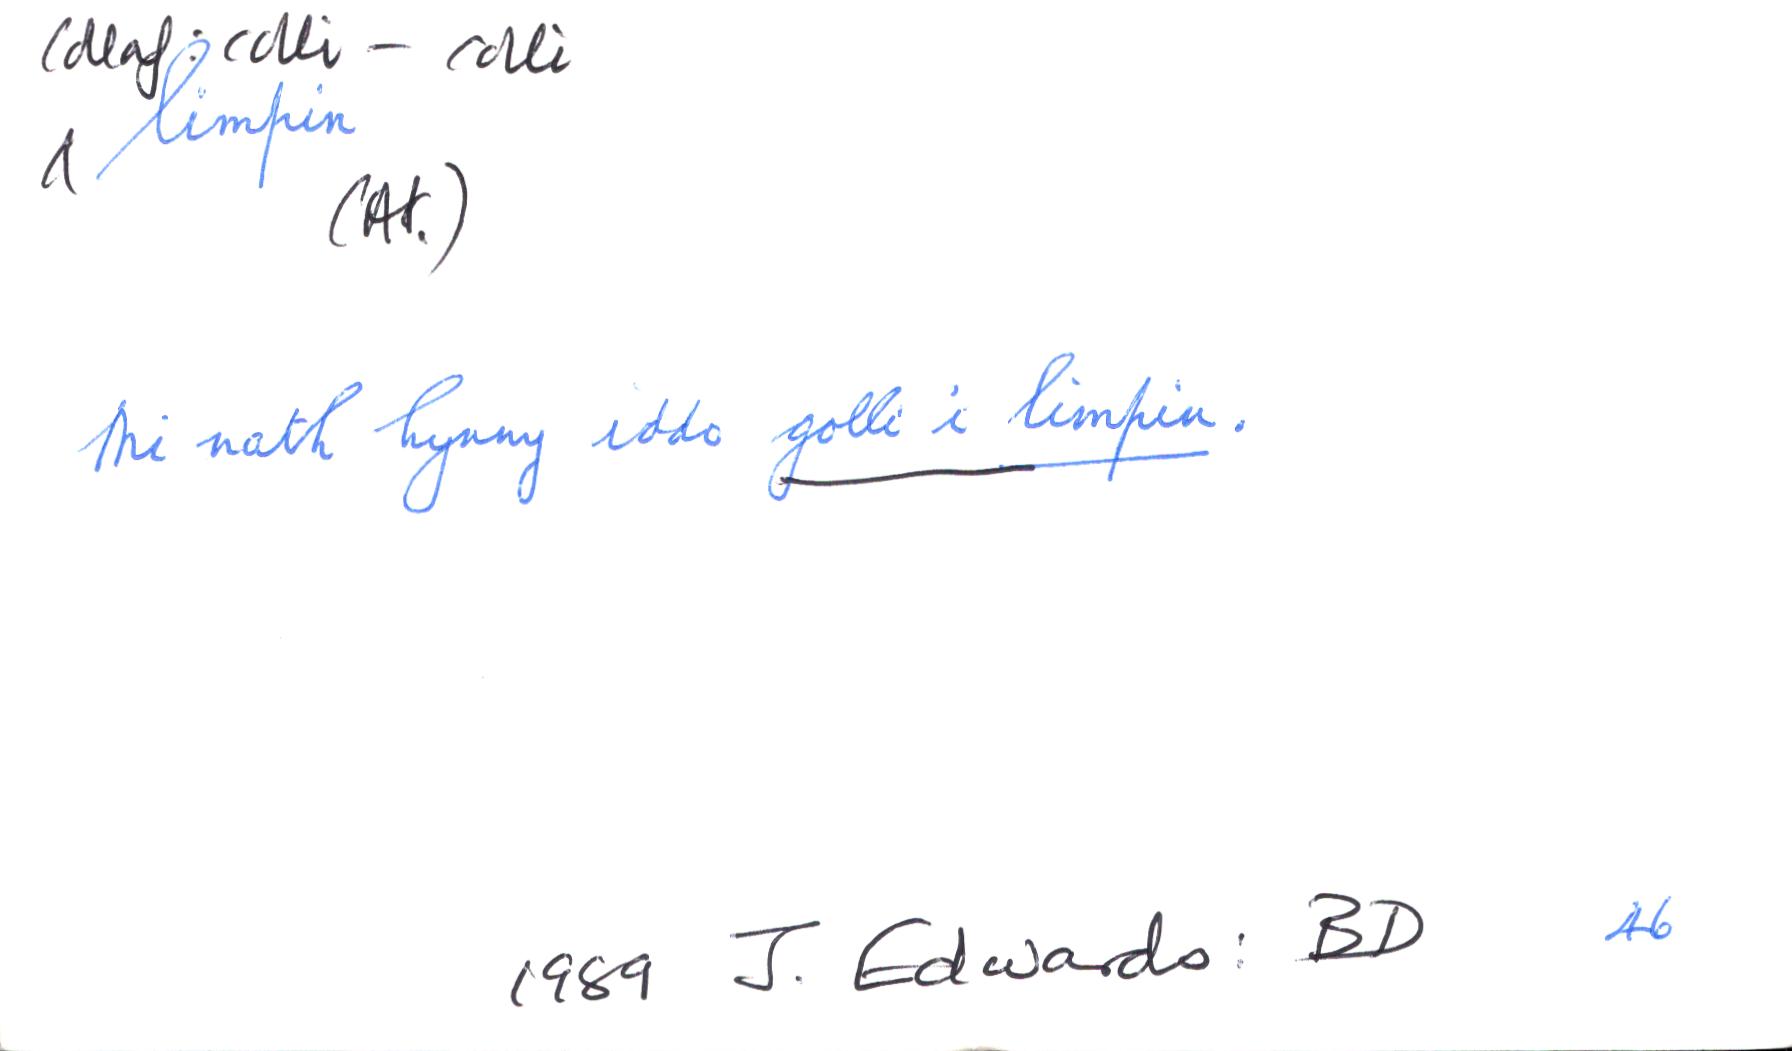 collaf: colli – colli
limpin
(At.)
Mi nath hynny iddo golli i limpin.
1989 J. Edwards: BD 46